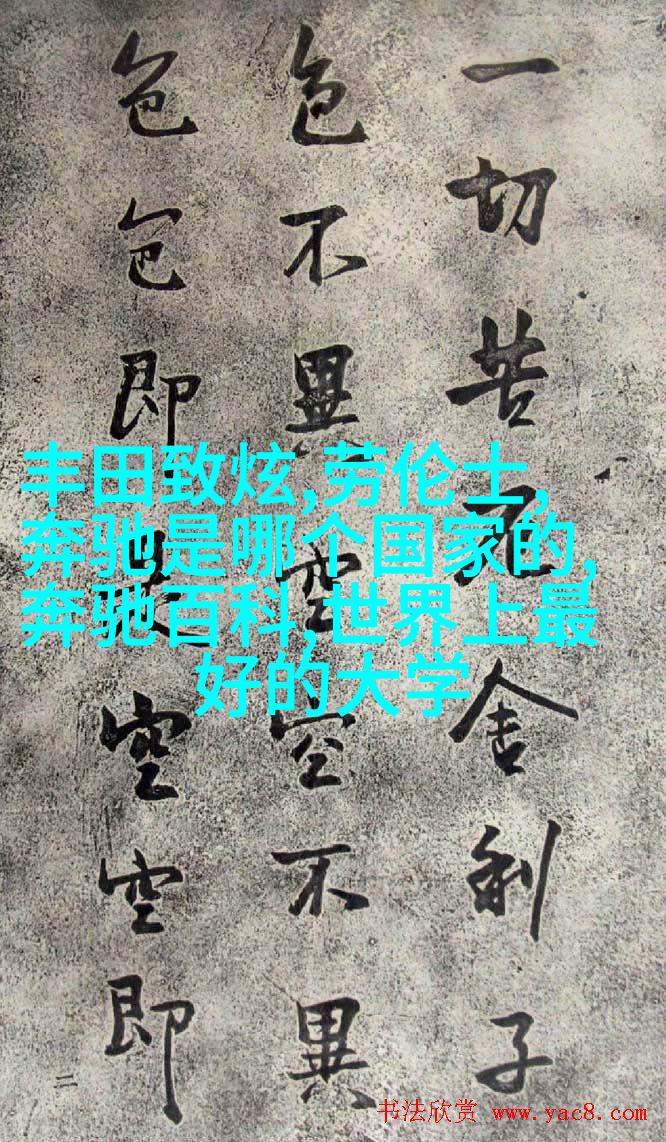 一切苦厄舍利子
色不異空空不異
色色即是空空即
二
丰田致炫,劳伦士,
奔驰是哪个国家的,
奔驰百科,世界上最
好的大学
书法欣赏 www.yac8.com